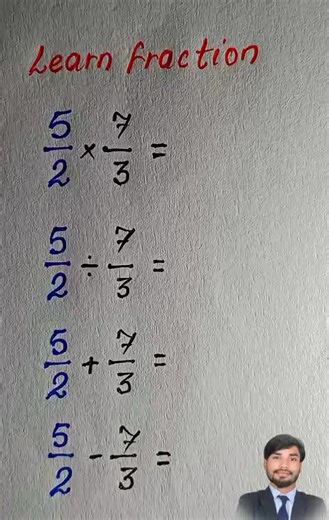 Learn fraction
5/2 × 7/3 =
5/2 ÷ 7/3 =
5/2 + 7/3 =
5/2 - 7/3 =